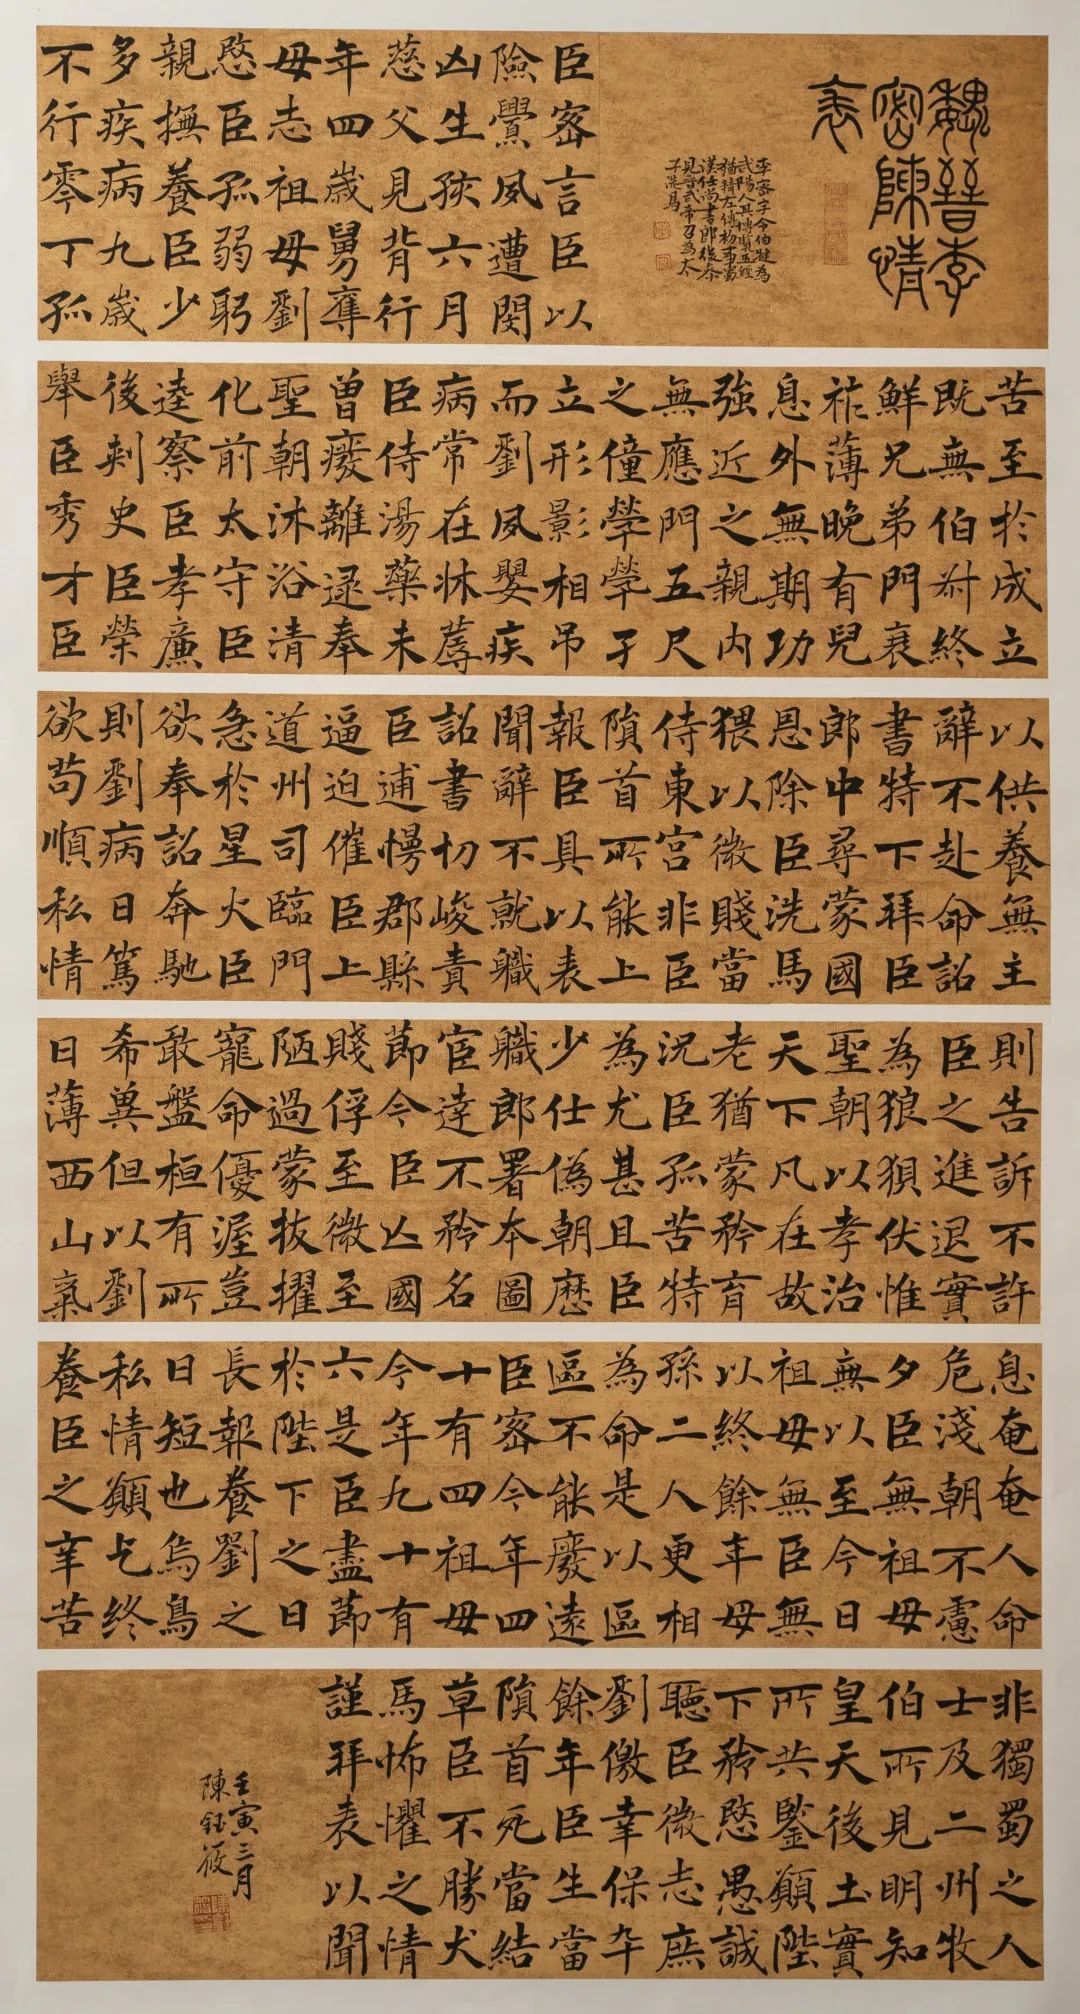 魏晉李
密陳情
表
李密字令伯犍為
武陽人其博覽五經
猶精左傳初事蜀
漢任尚書郎後泰
見晉武帝召為太
子洗馬
臣密言臣以
險釁夙遭閔
凶生孩六月
慈父見背行
年四歲舅奪
母志祖母劉
愍臣孤弱躬
親撫養臣少
多疾病九歲
不行零丁孤
苦至於成立
既無伯叔終
鮮兄弟門衰
祚薄晚有兒
息外無期功
強近之親內
無應門五尺
之僮煢煢孑
立形影相吊
而劉夙嬰疾
病常在牀蓐
臣侍湯藥未
曾廢離逮奉
聖朝沐浴清
化前太守臣
逵察臣孝廉
後刺史臣榮
舉臣秀才臣
以供養無主
辭不赴命詔
書特下拜臣
郎中尋蒙國
恩除臣洗馬
猥以微賤當
侍東宮非臣
隕首所能上
報臣具以表
聞辭不就職
詔書切峻責
臣逋慢郡縣
逼迫催臣上
道州司臨門
急於星火臣
欲奉詔奔馳
則劉病日篤
欲苟順私情
則告訴不許
臣之進退實
為狼狽伏惟
聖朝以孝治
天下凡在故
老猶蒙矜育
況臣孤苦特
為尤甚且臣
少仕偽朝歷
職郎署本圖
宦達不矜名
節今臣亡國
賤俘至微至
陋過蒙拔擢
寵命優渥豈
敢盤桓有所
希冀但以劉
日薄西山氣
息奄奄人命
危淺朝不慮
夕臣無祖母
無以至今日
祖母無臣無
以終餘年母
孫二人更相
為命是以區
區不能廢遠
臣密今年四
十有四祖母
今年九十有
六是臣盡節
於陛下之日
長報養劉之
日短也烏鳥
私情願乞終
養臣之辛苦
非獨蜀之人
士及二州牧
伯所見明知
皇天後土實
所共鑒願陛
下矜愍愚誠
聽臣微志庶
劉僥幸保卒
餘年臣生當
隕首死當結
草臣不勝犬
馬怖懼之情
謹拜表以聞
壬寅三月
陳鈺筱